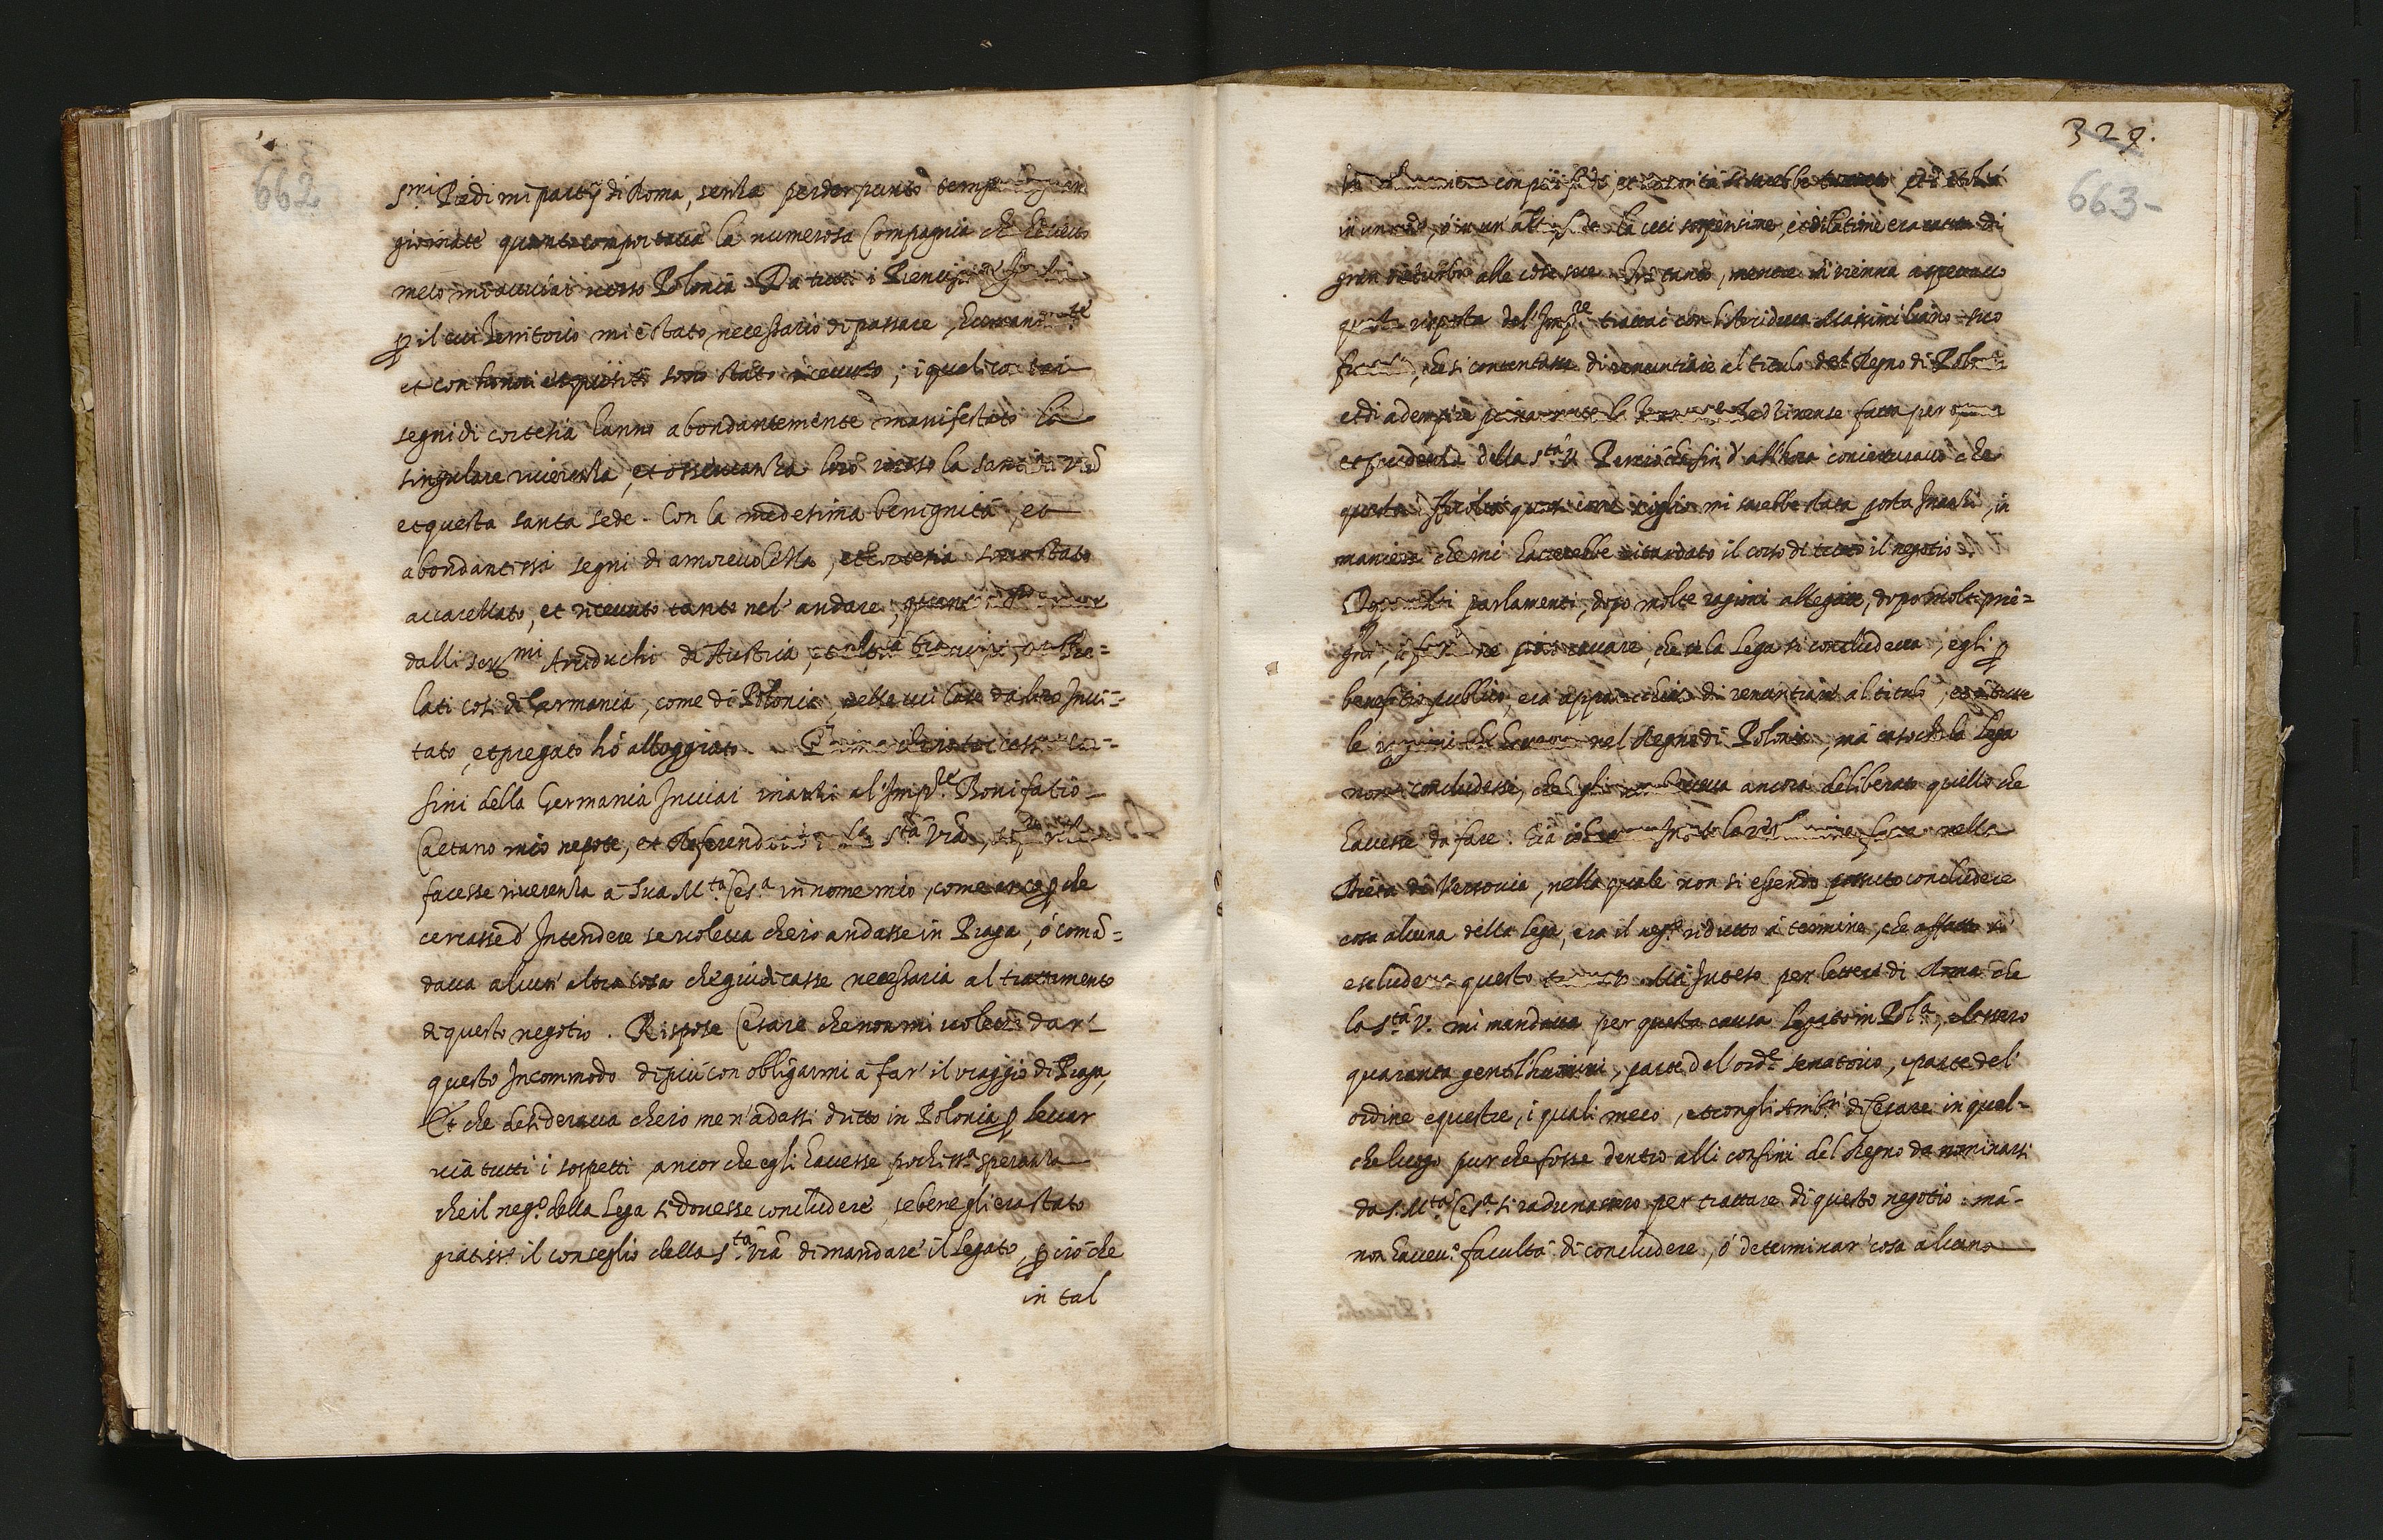 662
S.mi Piedi mi partij di Roma, senza perder punto tempo
giornate quanto comportaua la numerosa Compagnia ch' haueuo
meco mi auuiai uerso Polonia. Da tutti i Prencipi
ꝑ il cui Territorio mi è stato necessario di passare, humaniss.te
et con honori esquisiti sono stato riceuuto; i quali con tai
segni di cortesia hanno abondantemente manifestato la
singulare riuerenza, et osseruanza loro uerso la Santità Vrã
et questa santa sede. Con la medesima benignità, et
abondantissi segni di amoreuolezza, et cortesia sono stato
accarezzato, et riceuuto tanto nel' andare, quanto
dalli Ser.mi Arciduchi di Austria, Pre=
lati così di Germania, come di Polonia, nelle cui Case da loro Inui=
tato, et pregato hò alloggiato. Prima ch'io toccassi con=
fini della Germania Inuiai inanzi al' Imp.re Bonifatio
Caetano mio nepote, et Referendario S.tà Vrã,
facesse riuerenza à Sua M.tà Ces.a in nome mio, come anco ꝑche
cercasse d' Intendere se uoleua ch'io andasse in Praga, ò comã=
daua alcun' altra cosa che giudicasse necessaria al trattamento
di questo negotio. Rispose Cesare che non mi uoleua dar'
questo Incommodo di più con obligarmi à far' il uiaggio di Praga,
Et che desideraua ch'io me n'ãdassi dritto in Polonia ꝑ leuar
uia tutti i sospetti ancor che egli hauesse pochiss.a speranza
che il neg.o della Lega si douesse concludere, se bene gli era stato
gratiss.o il conseglio della S.tà Vrã di mandare il Legato, ꝑ ciò che
in tal
327.
663-
con più
in un modo, ò in un' altro, la cui sospensione, et dilatione era causa di
gran disturbo alle cose sue. Fra tanto, mentre in Vienna aspettauo
questa risposta del' Imp.re trattai con l'Arciduca Massimiliano suo
fratello, che si contentasse di renuntiare al titulo del Regno di Polonia
et di adempire Bedzinense fatta per opera
et prudenza della S.tà V. Percioche fin d' all'hora conietturauo che
questa mi sarebbe stata posta Inanzi, in
maniera che mi hauerebbe ritardato il corso di tutto il negotio
Dopo molti parlamenti, dopo molte ragioni allegate, dopo molti prie=
ghi, se la Lega si concludeua, egli ꝑ
beneficio publico, era apparecchiato di renuntiare al titulo, et à tutte
le ragioni che haueua nel Regno di Polonia, mà caso che la Lega
non si concludesse, che egli non haueua ancora deliberato quello che
hauesse da fare. nella
Dieta di Versouia, nella quale non si essendo possuto concludere
cosa alcuna della Lega, era il neg.o ridutto à termine, che affatto si
escludeua questo Inteso per lettere di Roma che
la S.tà V. mi mandaua per questa causa Legato in Pol.a, elessero
quaranta gentilhuomini, parte del' ord.e senatorio, e parte del'
ordine equestre, i quali meco, et con gli Amb.ri di Cesare in qual=
che luogo pur che fosse dentro alli confini del Regno da nominarsi
da S. M.tà Ces.a si radunassero per trattare di questo negotio: mà
non haueu.o facultà di concludere, ò determinar' cosa alcuna